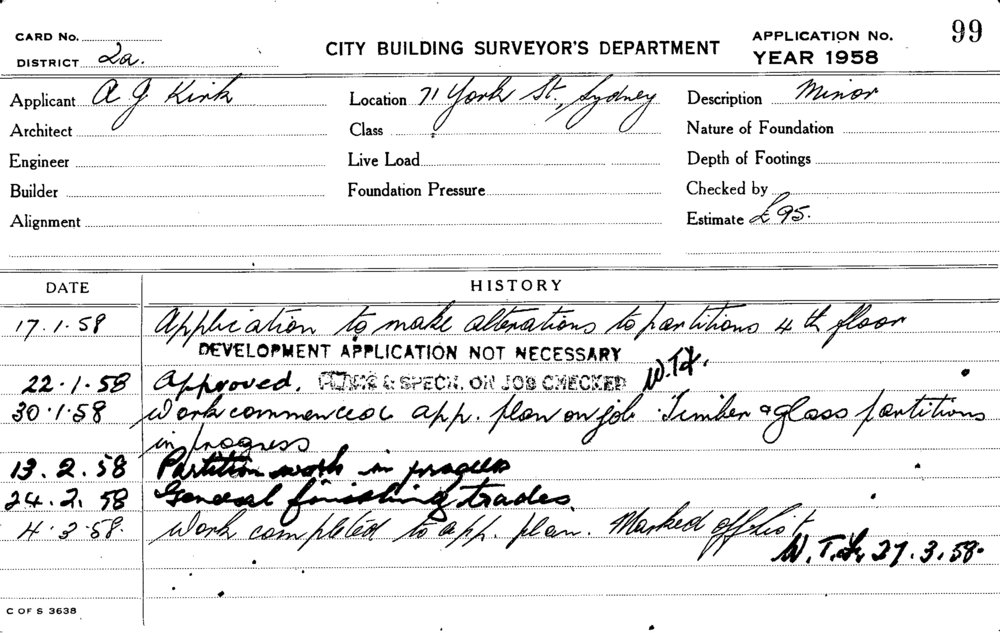 CARD No.
DISTRICT 2a.
CITY BUILDING SURVEYOR'S DEPARTMENT
APPLICATION No. 99
YEAR 1958
Applicant A J Kirk
Location 71 York St., Sydney
Description Minor
Architect
Class
Nature of Foundation
Engineer
Live Load
Depth of Footings
Builder
Foundation Pressure
Checked by
Alignment
Estimate £95.
DATE HISTORY
17.1.58 Application to make alterations to partitions 4th floor
DEVELOPMENT APPLICATION NOT NECESSARY
22.1.58 Approved. PLANS & SPECN. ON JOB CHECKED
30.1.58 Work commenced app. plan on job. Timber & glass partitions
in progress
13.2.58 Partition work in progress
24.2.58 General finishing trades.
4.3.58. Work completed to app. plan. Marked off list.
27.3.58.
C OF S 3638